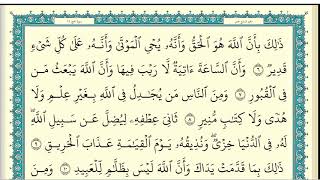 ذَٰلِكَ بِأَنَّ ٱللَّهَ هُوَ ٱلْحَقُّ وَأَنَّهُۥ يُحْىِ ٱلْمَوْتَىٰ وَأَنَّهُۥ عَلَىٰ كُلِّ شَىْءٍ
قَدِيرٌ ٦ وَأَنَّ ٱلسَّاعَةَ ءَاتِيَةٌ لَّا رَيْبَ فِيهَا وَأَنَّ ٱللَّهَ يَبْعَثُ مَن فِى
ٱلْقُبُورِ ٧ وَمِنَ ٱلنَّاسِ مَن يُجَٰدِلُ فِى ٱللَّهِ بِغَيْرِ عِلْمٍ وَلَا
هُدًى وَلَا كِتَٰبٍ مُّنِيرٍ ٨ ثَانِىَ عِطْفِهِۦ لِيُضِلَّ عَن سَبِيلِ ٱللَّهِ
لَهُۥ فِى ٱلدُّنْيَا خِزْىٌ وَنُذِيقُهُۥ يَوْمَ ٱلْقِيَٰمَةِ عَذَابَ ٱلْحَرِيقِ ٩
ذَٰلِكَ بِمَا قَدَّمَتْ يَدَاكَ وَأَنَّ ٱللَّهَ لَيْسَ بِظَلَّٰمٍ لِّلْعَبِيدِ ١٠ وَمِنَ